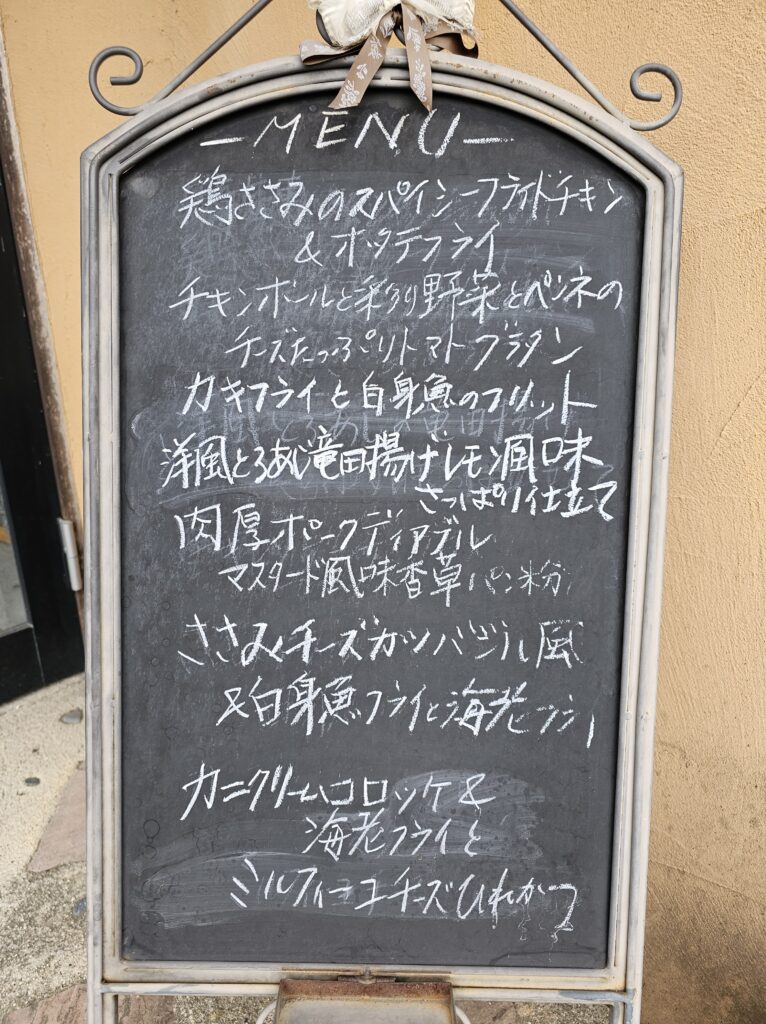 -MENU-
鶏ささみのスパイシーフライドチキン
&ホタテフライ
チキンボールと彩り野菜とペンネの
チーズたっぷりトマトグラタン
カキフライと白身魚のフリット
洋風とろあじ滝田揚げレモン風味
さっぱり仕立て
肉厚ポークディアブル
マスタード風味香草パン粉
ささみチーズカツバジル風
&白身魚フライと海老フライ
カニクリームコロッケ&
海老フライと
ミルフィーユチーズひれかつ